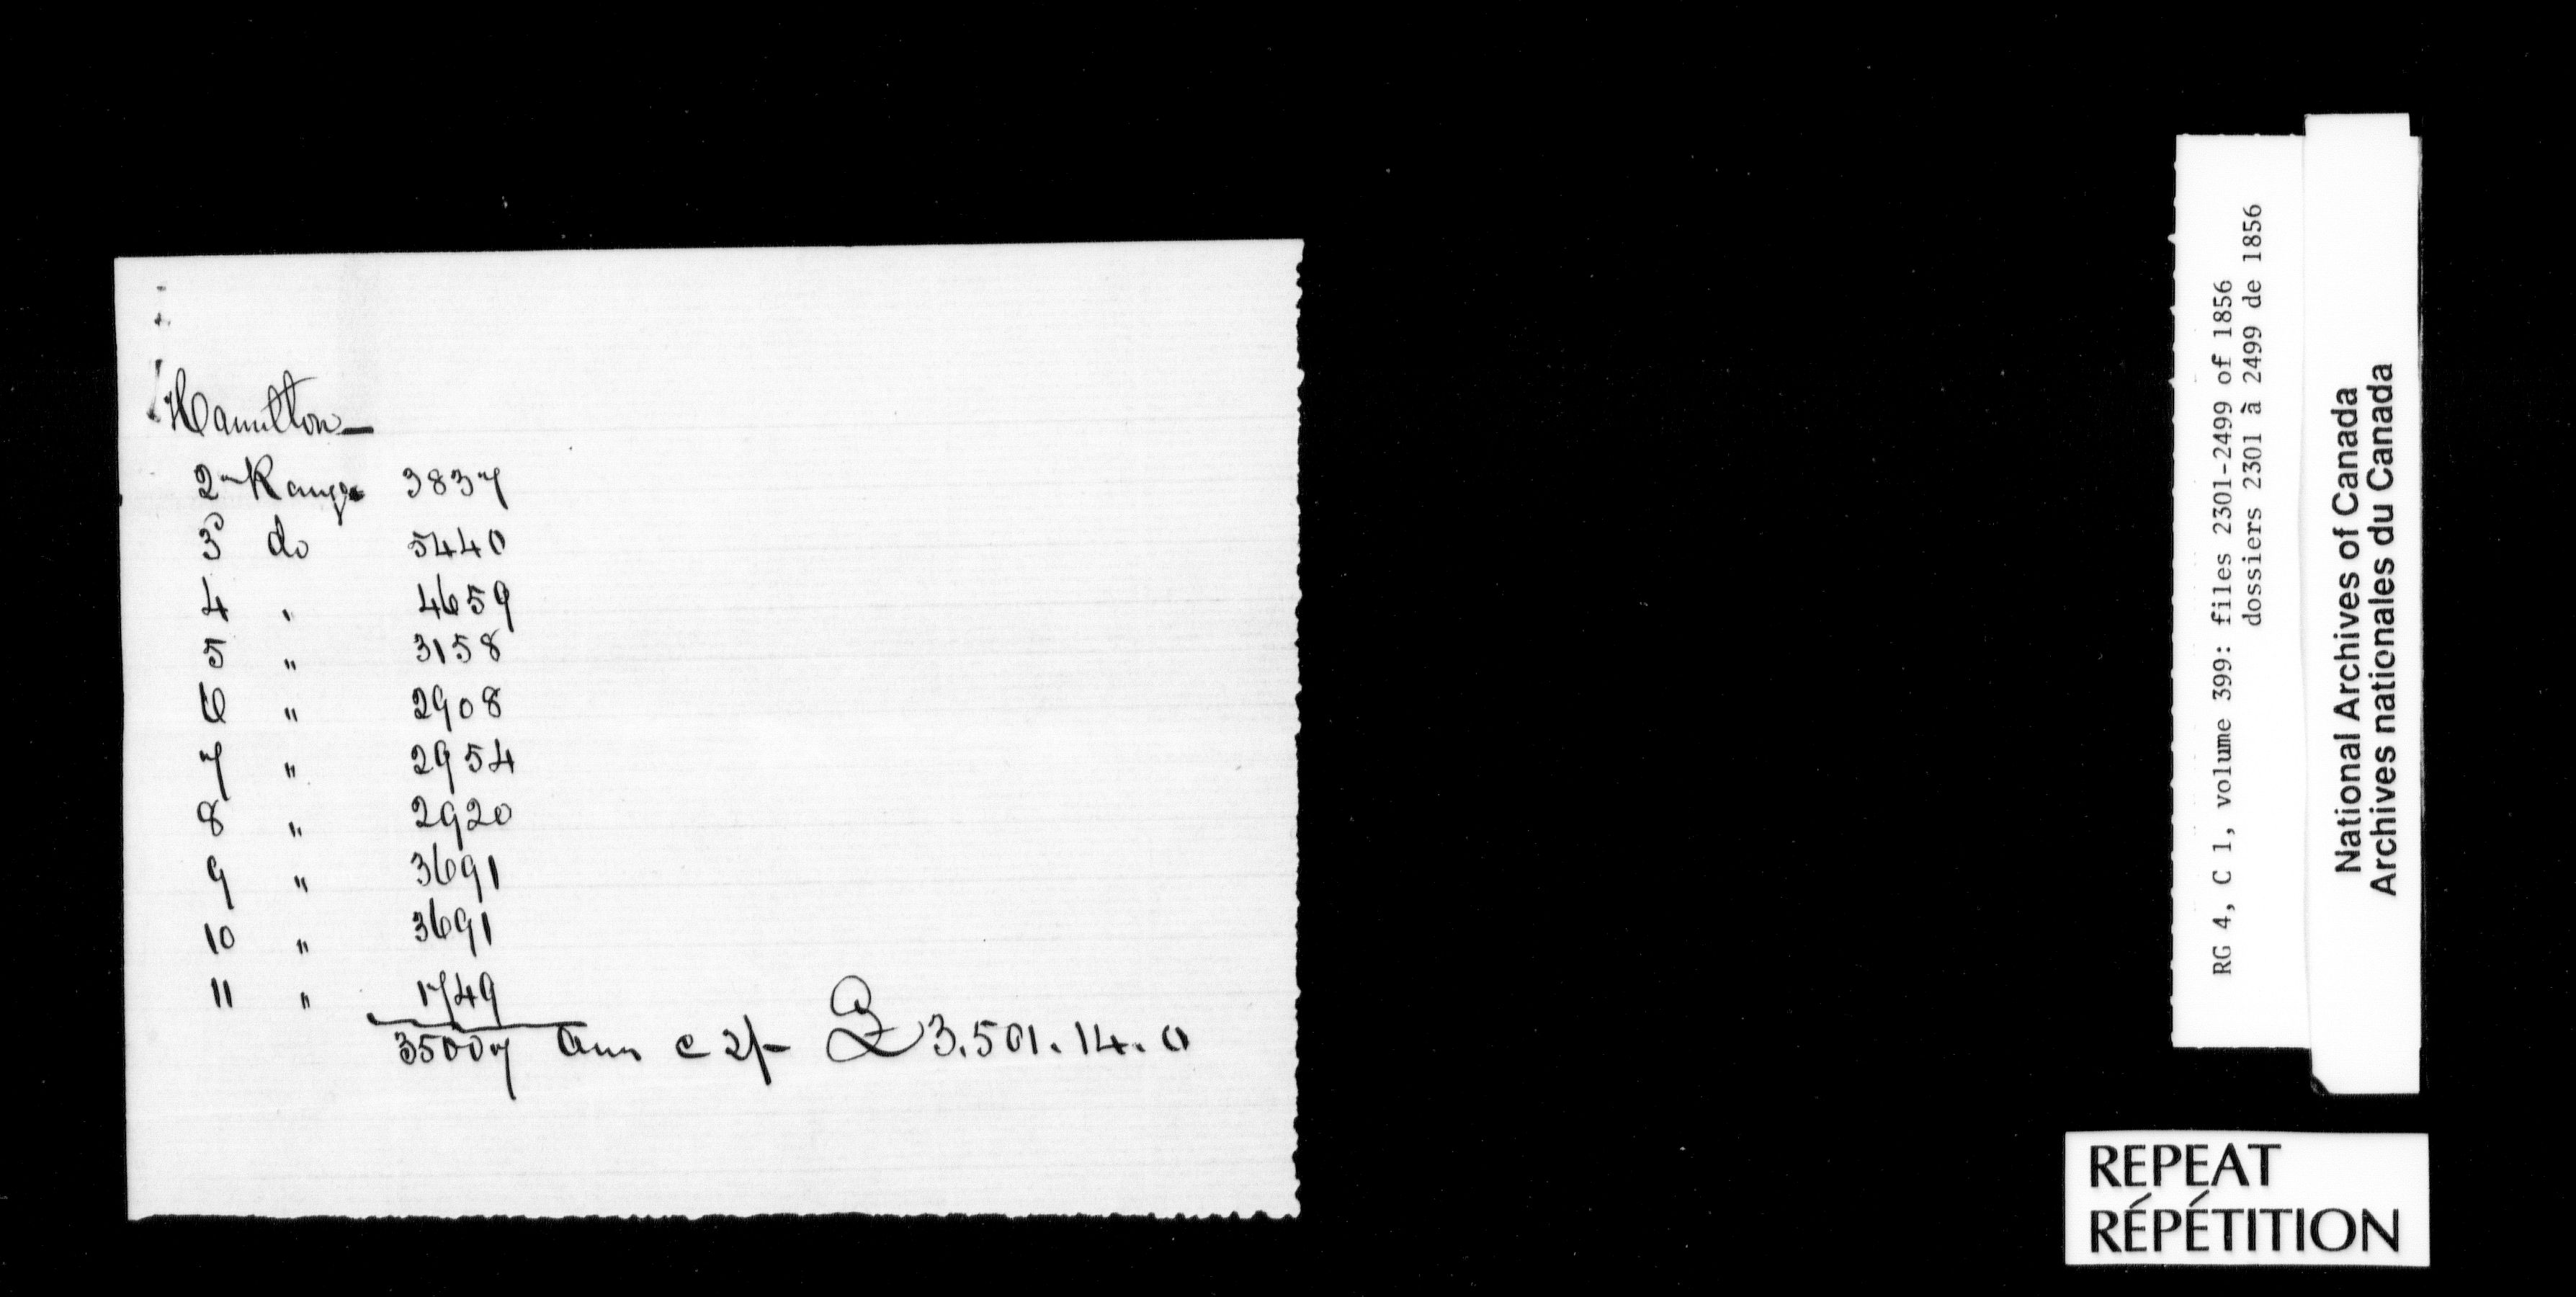 Hamilton_
2nd Range 3837
3d do 5440
4 " 4659
5 " 3158
6 " 2908
7 " 2954
8 " 2920
9 " 3691
10 " 3691
11 " 1749
35007 Acres @ 2/- £3.501.14.0
RG 4, C 1, volume 399: files 2301-2499 of 1856
dossiers 2301 à 2499 de 1856
National Archives of Canada
Archives nationales du Canada
REPEAT
RÉPÉTITION